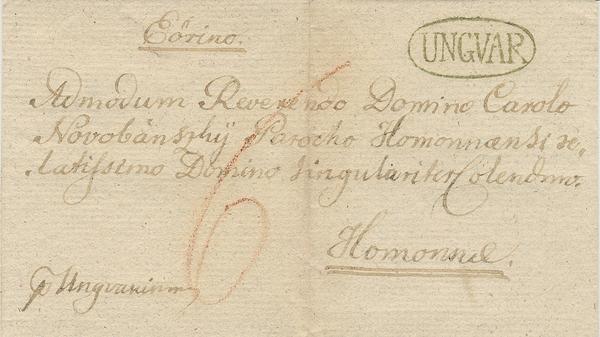 Eörino.
UNGVAR
Admodum Reverendo Domino Carolo
Novobánszkÿ Parocho Homonnensi ze,
latissimo Domino Singulariter Colendmo.
Homonnæ.
6
p Ungvarinum